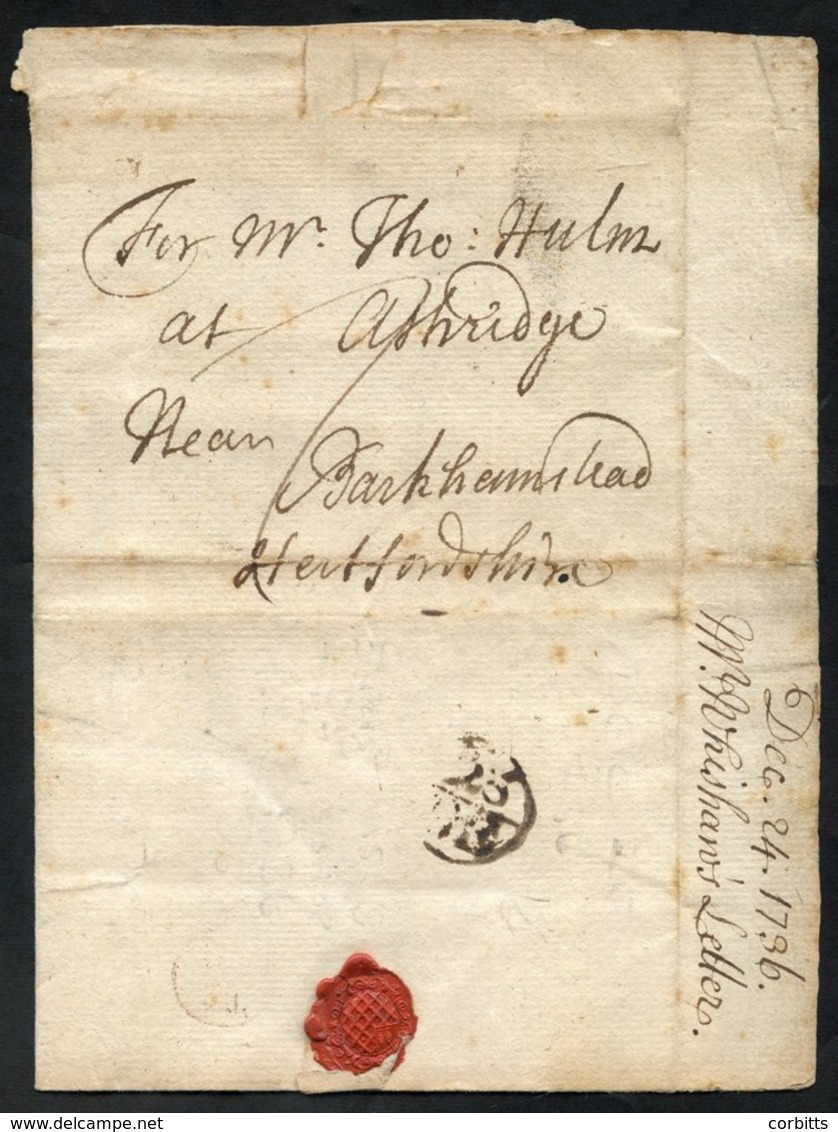 For Mr. Tho: Hulm
at Ashridge
Near
Barkhamstead
Hertfordshire
Dec. 24. 1736.
Mr. Whishaw's Letter.
delcampe.net
corbitts